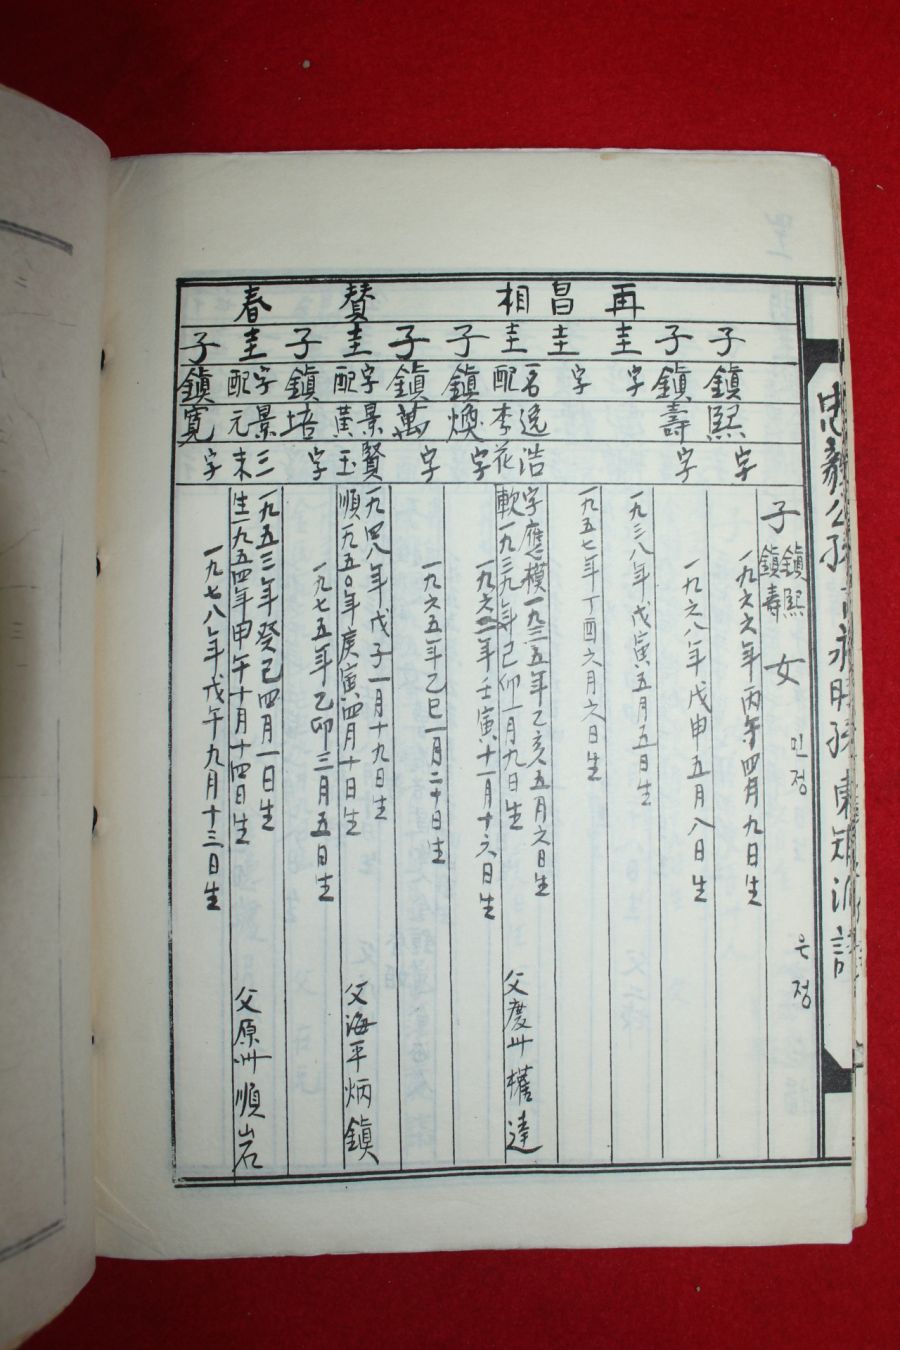 子 鎭熙 鎭壽 女 민정 은정
子 鎭熙 字 一九六六年丙午四月九日生
子 鎭壽 字 一九六八年戊申五月八日生
再圭 字 一九三八年戊寅五月五日生
昌圭 字 一九五七年丁酉六月六日生
相圭 一名逸浩 字應模一九三五年乙亥五月六日生
配李花軟一九三九年己卯一月九日生 父慶州 權達
子 鎭煥 字 一九六二年壬寅十一月十六日生
子 鎭萬 字 一九六五年乙巳一月二十日生
賛圭 字景賢 一九四八年戊子一月十九日生
配黃玉順一九五〇年庚寅四月十日生 父海平 炳鎭
子 鎭培 字 一九七五年乙卯三月五日生
春圭 字景三 一九五三年癸己四月一日生
配元末生一九五四年甲午十月十四日生 父原州 順岩
子 鎭寬 字 一九七八年戊午九月十三日生